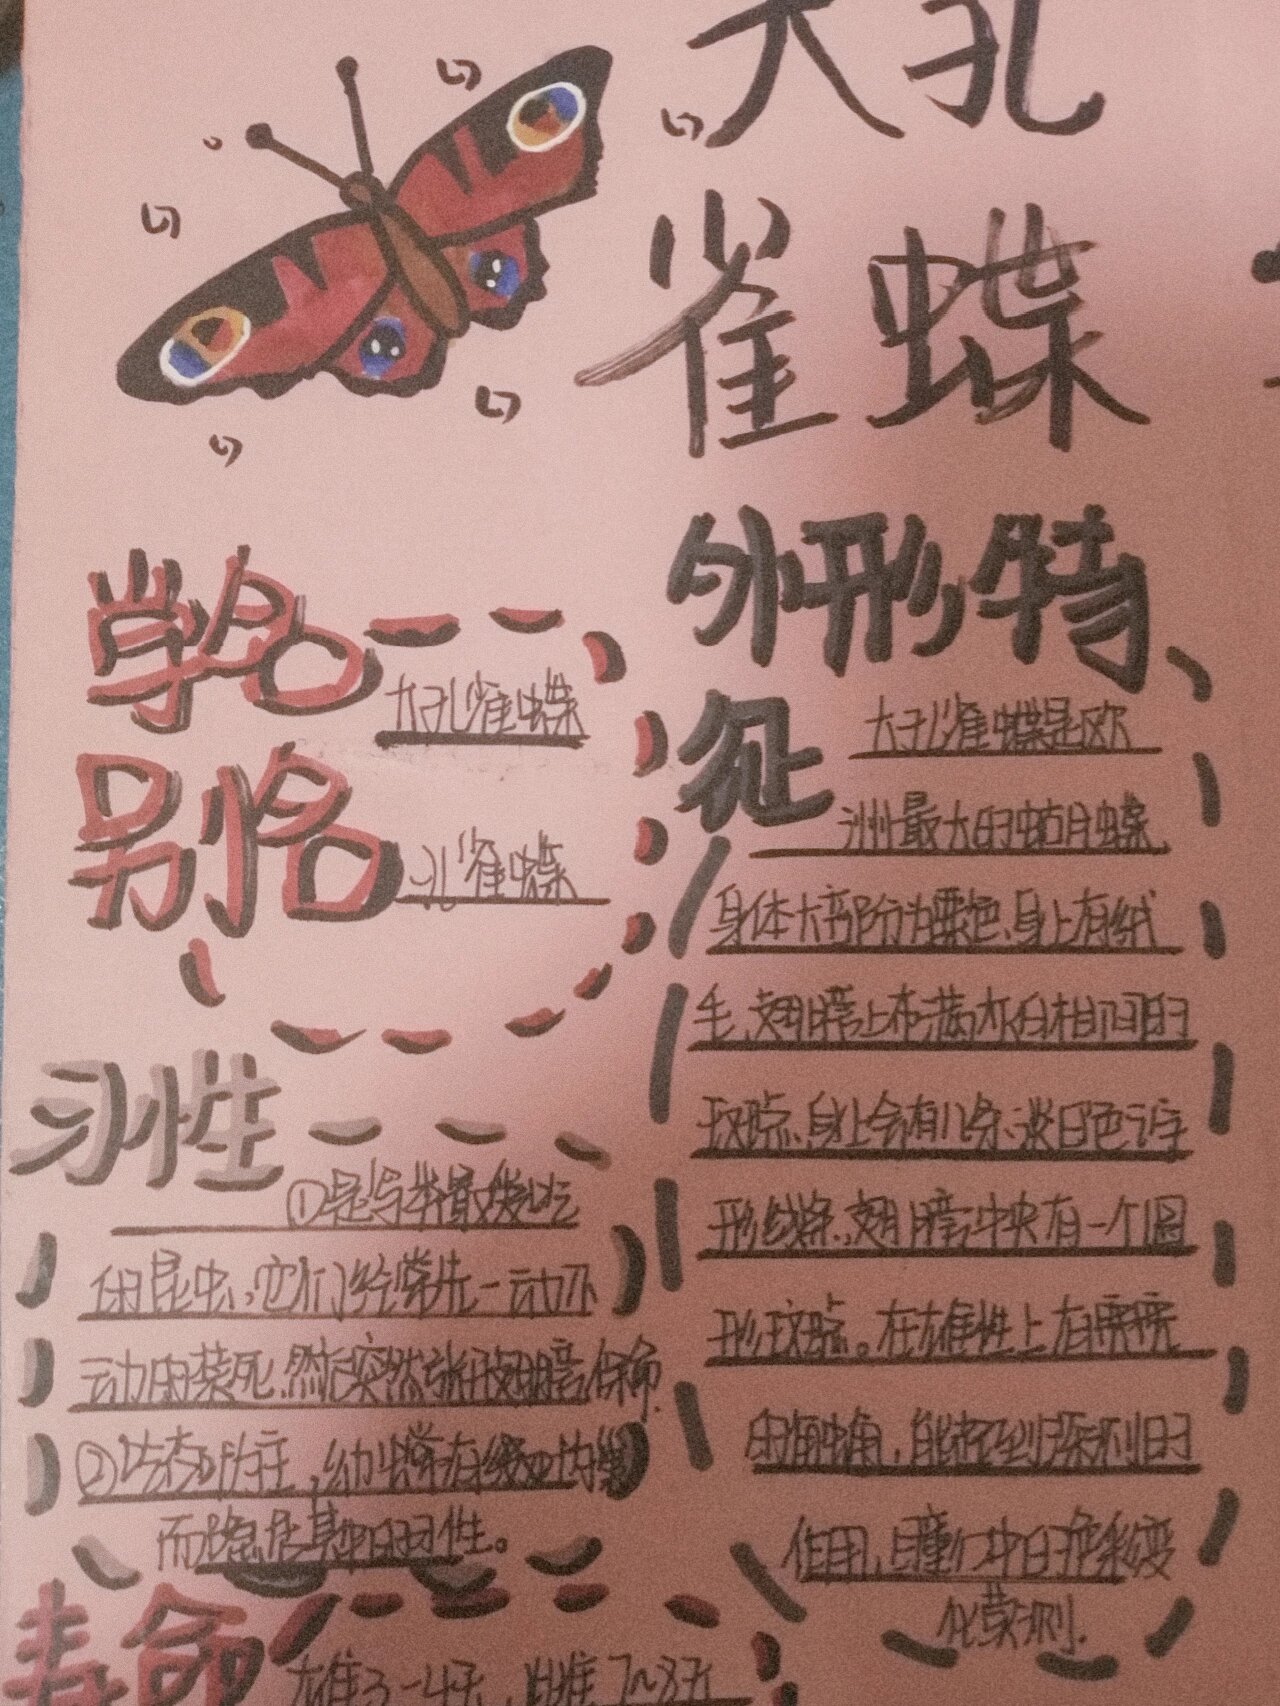 大孔
雀蝶
学名
大孔雀蝶
别名
孔雀蝶
外形特
征
大孔雀蝶是欧
洲最大的蛾蝶
身体大部分为栗色、身上有绒
毛、翅膀上布满灰白相间的
斑点、身上会有几条淡白色
形线条、翅膀中央有一个圆
形斑点。在雄性上有
的触角,能起到探测的
作用,
变
化莫测.
习性
①是
的昆虫,它们经常先一动不
动的装死,然后突然张开翅膀
②幼虫常有
而隐居其中的习性。
寿命
雄3-4天,雌7~8天